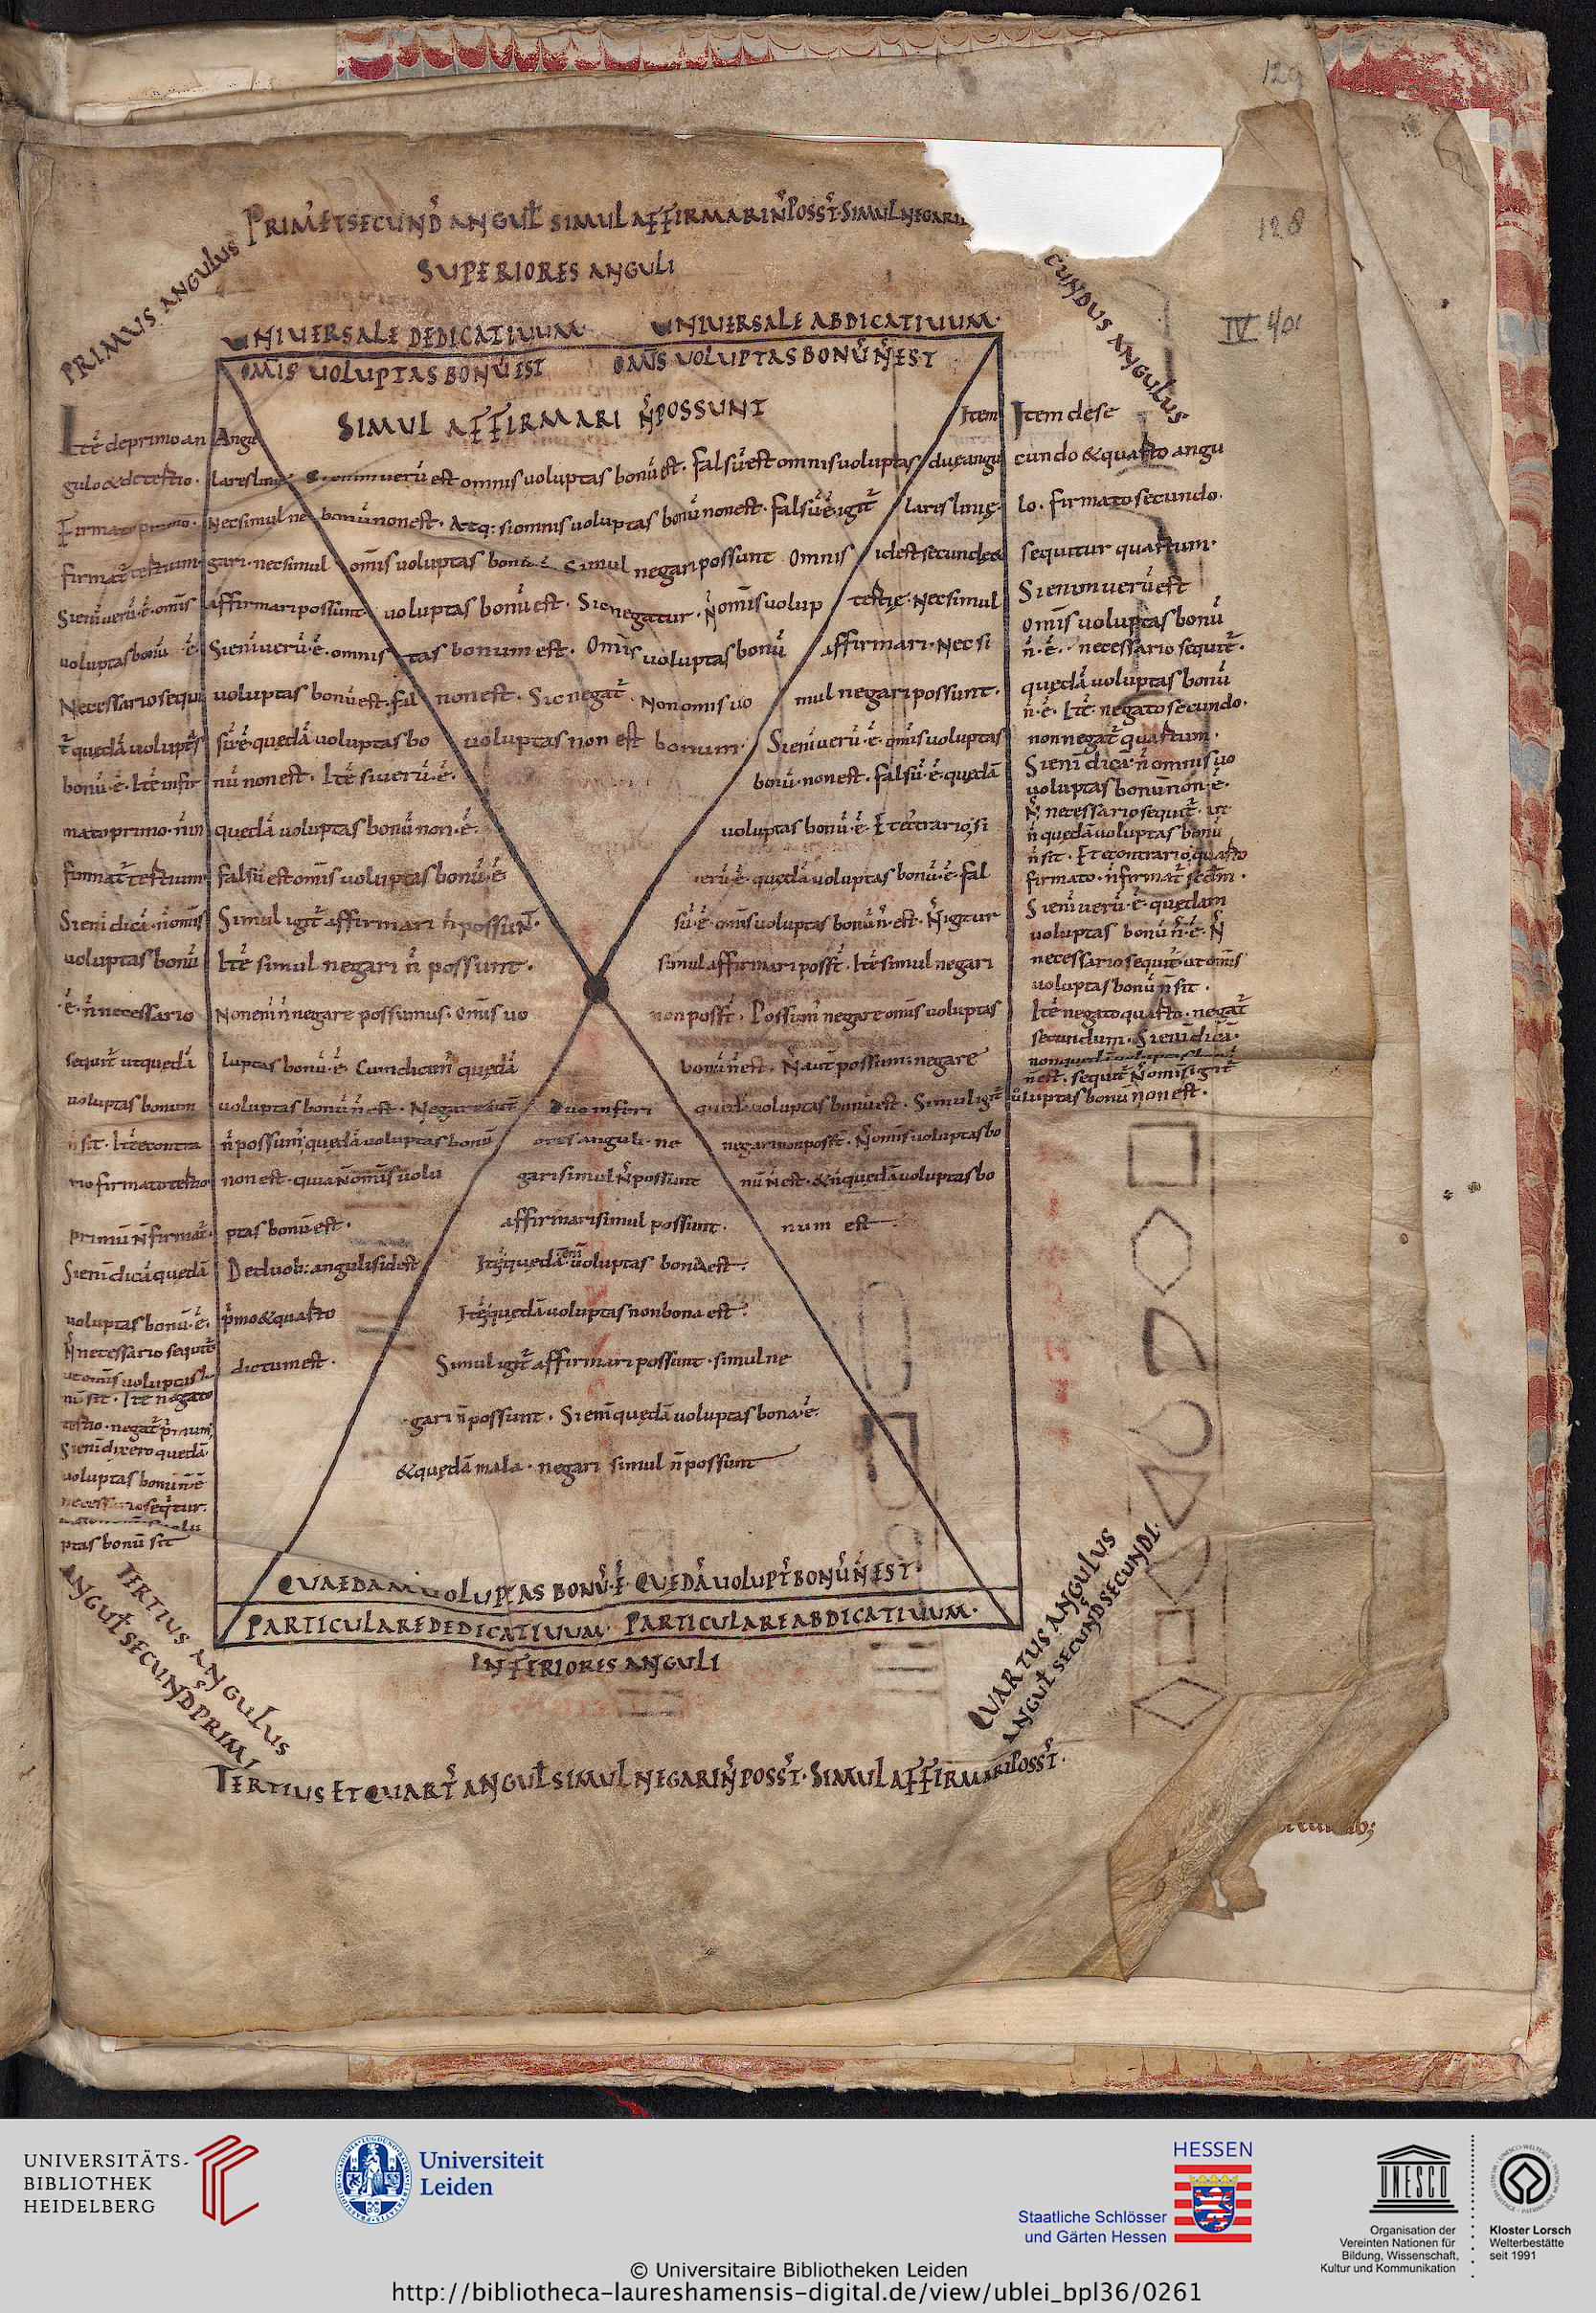 129
128
IV 401
PRIM' ET SECUND' ANGUŁ SIMUL AFFIRMARI Ñ POSST· SIMUL NEGARI
SUPERIORES ANGULI
PRIMUS ANGULUS
CUNDUS ANGULUS
UNIUERSALE DEDICATIUUM UNIUERSALE ABDICATIUUM·
OMIS UOLUPTAS BONŪ EST OMIS UOLUPTAS BONŪ Ñ EST
SIMUL AFFIRMARI Ñ POSSUNT
Itē de primo an
gulo & de tertio·
Firmato primo·
firmat̄ tertium·
Si eni uerū·ē·omis
uoluptas bonū ·ē·
Necessario sequi
t̄ quedā uoluptas
bonū·ē· Itē infir
mato primo· n̄ in
firmat̄ tertium
Si eni dicā· n̄ omis
uoluptas bonū
·ē· n̄ necessario
sequit̄ ut quedā
uoluptas bonum
n̄ sit· Itē econtra
rio firmato tertio
primū n̄ firmat̄·
Si eni dicā quedā
uoluptas bonū·ē·
n̄ necessario sequit̄
ut omis uoluptas
nū sit· Itē negato
tertio· negat̄ primum
Si eni dixero quedā
uoluptas bonū n̄ ē
necessario seqtur·
ptas bonū sit
Angu
lares lineę
Nec simul ne
gari· nec simul
affirmari possunt
Si eni uerū·ē· omnis
uoluptas bonū est· fal
sū·ē· quedā uoluptas bo
nū non est· Itē si uerū·ē·
quedā uoluptas bonū non·ē·
falsū est omis uoluptas bonū·ē
Simul igit̄ affirmari n̄ possun̄t·
Itē simul negari n̄ possunt·
Non eni n̄ negare possumus· omis uo
luptas bonū·ē· Cum dicam̄ quedā
uoluptas bonū n̄ est· Negare aut̄
n̄ possum̄ quedā uoluptas bonū
non est· quia n̄ omis uolu
ptas bonū est·
De duob: angulis id est
p̄mo & quarto
dictum est·
enim uerū est omnis uoluptas bonū est· Falsū est omnis uoluptas
bonū non est· Atq: si omnis uoluptas bonū non est· falsū ē igit̄
omis uoluptas bonū ē· Simul negari possunt Omnis
uoluptas bonū est· Sic negatur· n̄ omis uolup
tas bonum est· Omis uoluptas bonū
non est· Sic negat̄· Non omis uo
uoluptas non est bonum·
Item
duę angu
lares linię·
id est secundę a
tertię· Nec simul
affirmari· Nec si
mul negari possunt·
Si eni uerū·ē· omis uoluptas
bonū· non est· falsū·ē· quedā
uoluptas bonū·ē· Et econtrario si
uerū·ē· quedā uoluptas bonū·ē· fal
sū·ē· omis uoluptas bonū n̄· est· N̄ igitur
simul affirmari posst̄· Itē simul negari
non posst̄· Possum̄ negare omis uoluptas
bonū n̄ est· N̄ aut̄ possum̄ negare
quedā uoluptas bonū est· Simul igit̄
negari non posst̄· N̄ omis uoluptas bo
nū n̄ est· & n̄ quedā uoluptas bo
num est·
Duo inferi
ores anguli· ne
gari simul n̄ possunt
affirmari simul possunt·
Itę quedā eni uoluptas bona est·
Itę quedā uoluptas non bona est·
Simul igit̄ affirmari possunt· simul ne
gari n̄ possunt· Si eni quedā uoluptas bona·ē·
& quedā mala· negari simul n̄ possunt
Item de se
cundo & quarto angu
lo· Firmato secundo·
sequitur quartum·
Si enim uerū est
omis uoluptas bonū
n̄·ē· necessario sequit̄·
quedā uoluptas bonū
n̄·ē· Itē negato secundo·
non negat̄ quartum·
Si eni dicā· n̄ omnis uo
uoluptas bonum non·ē·
N̄ necessario sequit̄· ut
n̄ quedā uoluptas bonū
n̄ sit· Et econtrario quarto
firmato· n̄ firmat̄ secdm̄·
Si eni uerū·ē· quedam
uoluptas bonū n̄·ē· N̄
necessario sequit̄ ut omis
uoluptas bonū n̄ sit·
Itē negato quarto· negat̄
secundum· Si eni dicā·
non quedā uoluptas bonū
n̄ est· sequit̄ N̄ omis igit̄
uoluptas bonū non est·
QUAEDAM UOLUPTAS BONŪ·Ē· QUEDĀ UOLUPT' BONŪ Ñ EST
PARTICULARE DEDICATIUUM· PARTICULARE ABDICATIUUM·
INFERIORES ANGULI
TERTIUS ANGULUS
ANGUŁ SECUND' PRIMI
QUARTUS ANGULUS
ANGUŁ SECUND' SECUNDI·
TERTIUS ET QUART' ANGUŁ SIMUL NEGARI Ñ POSST· SIMUL AFFIRMARI POSST·
UNIVERSITÄTS-
BIBLIOTHEK
HEIDELBERG
Universiteit
Leiden
HESSEN
Staatliche Schlösser
und Gärten Hessen
UNESCO
Organisation der
Vereinten Nationen für
Bildung, Wissenschaft,
Kultur und Kommunikation
Kloster Lorsch
Welterbestätte
seit 1991
© Universitaire Bibliotheken Leiden
http://bibliotheca-laureshamensis-digital.de/view/ublei_bpl36/0261